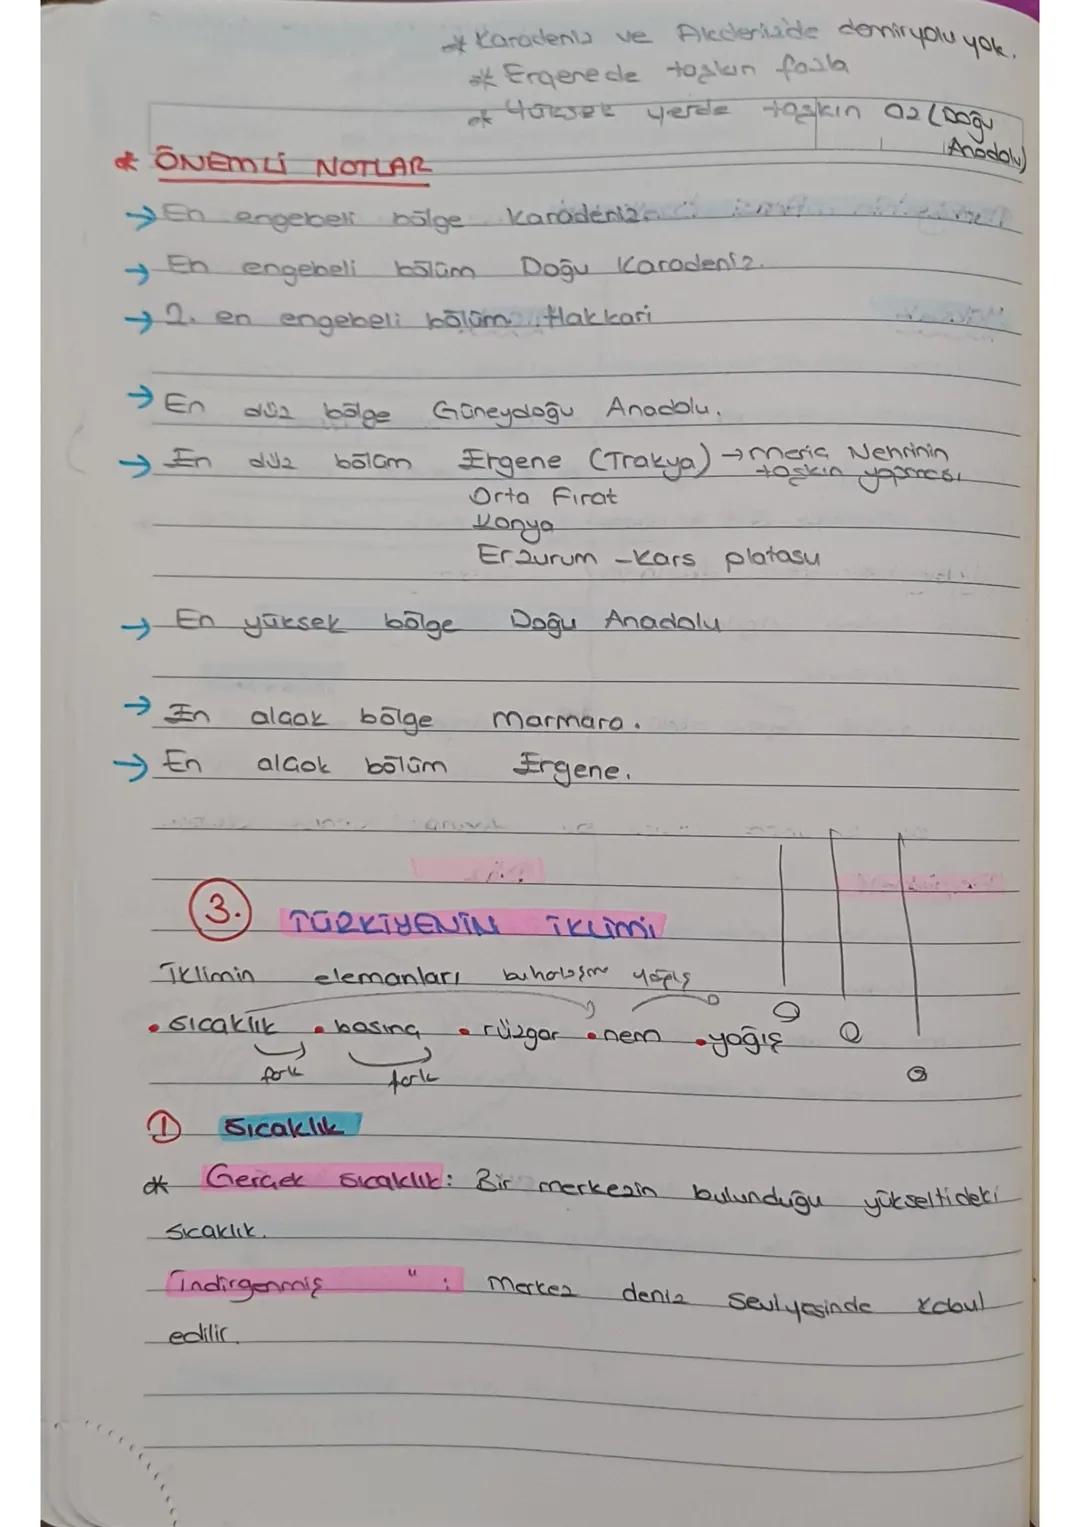 * Karadeniz ve Akdenizde demiryolu yok.
* Ergenede taşkın fazla
* Yüksek yerde taşkın az (Doğu Anadolu)
* ÖNEMLİ NOTLAR
→ En engebeli bölge Karadeniz.
→ En engebeli bölüm Doğu Karadeniz.
→ 2. en engebeli bölüm Hakkari
→ En düz bölge Güneydoğu Anadolu.
→ En düz bölüm Ergene (Trakya) → Meriç Nehrinin taşkın yapması
Orta Fırat
Konya
Erzurum - Kars platasu
→ En yüksek bölge Doğu Anadolu
→ En alçak bölge Marmara.
→ En alçak bölüm Ergene.
3. TÜRKİYENİN İKLİMİ
İklimin elemanları buharlaşma yağış
• sıcaklık • basınç • rüzgar • nem • yağış
fark fark
① Sıcaklık
* Gerçek sıcaklık: Bir merkezin bulunduğu yükseltideki
sıcaklık.
indirgenmiş " : Merkez deniz seviyesinde kabul
edilir.